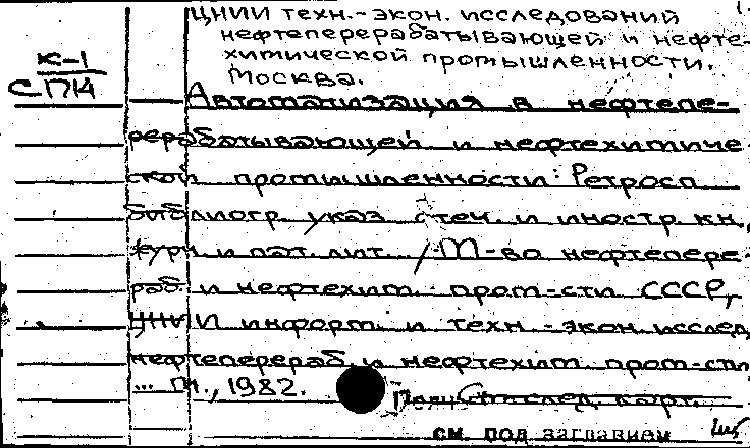 ЦНИИ техн.-экон. исследований
нефтеперерабатывающей и нефте-
химической промышленности.
Москва.
К-1
СП14
Автоматизация в нефтепе-
рерабатывающей и нефтехимиче
ской промышленности: Ретросп.
библиогр. указ. отеч. и иностр. кн.,
журн. и пат. лит. / М-во нефтепере-
раб. и нефтехим. пром-сти СССР,
ЦНИИ информ. и техн.-экон. исслед.
нефтеперераб. и нефтехим. пром-сти
... М., 1982.
след. карт.
см. под заглавием